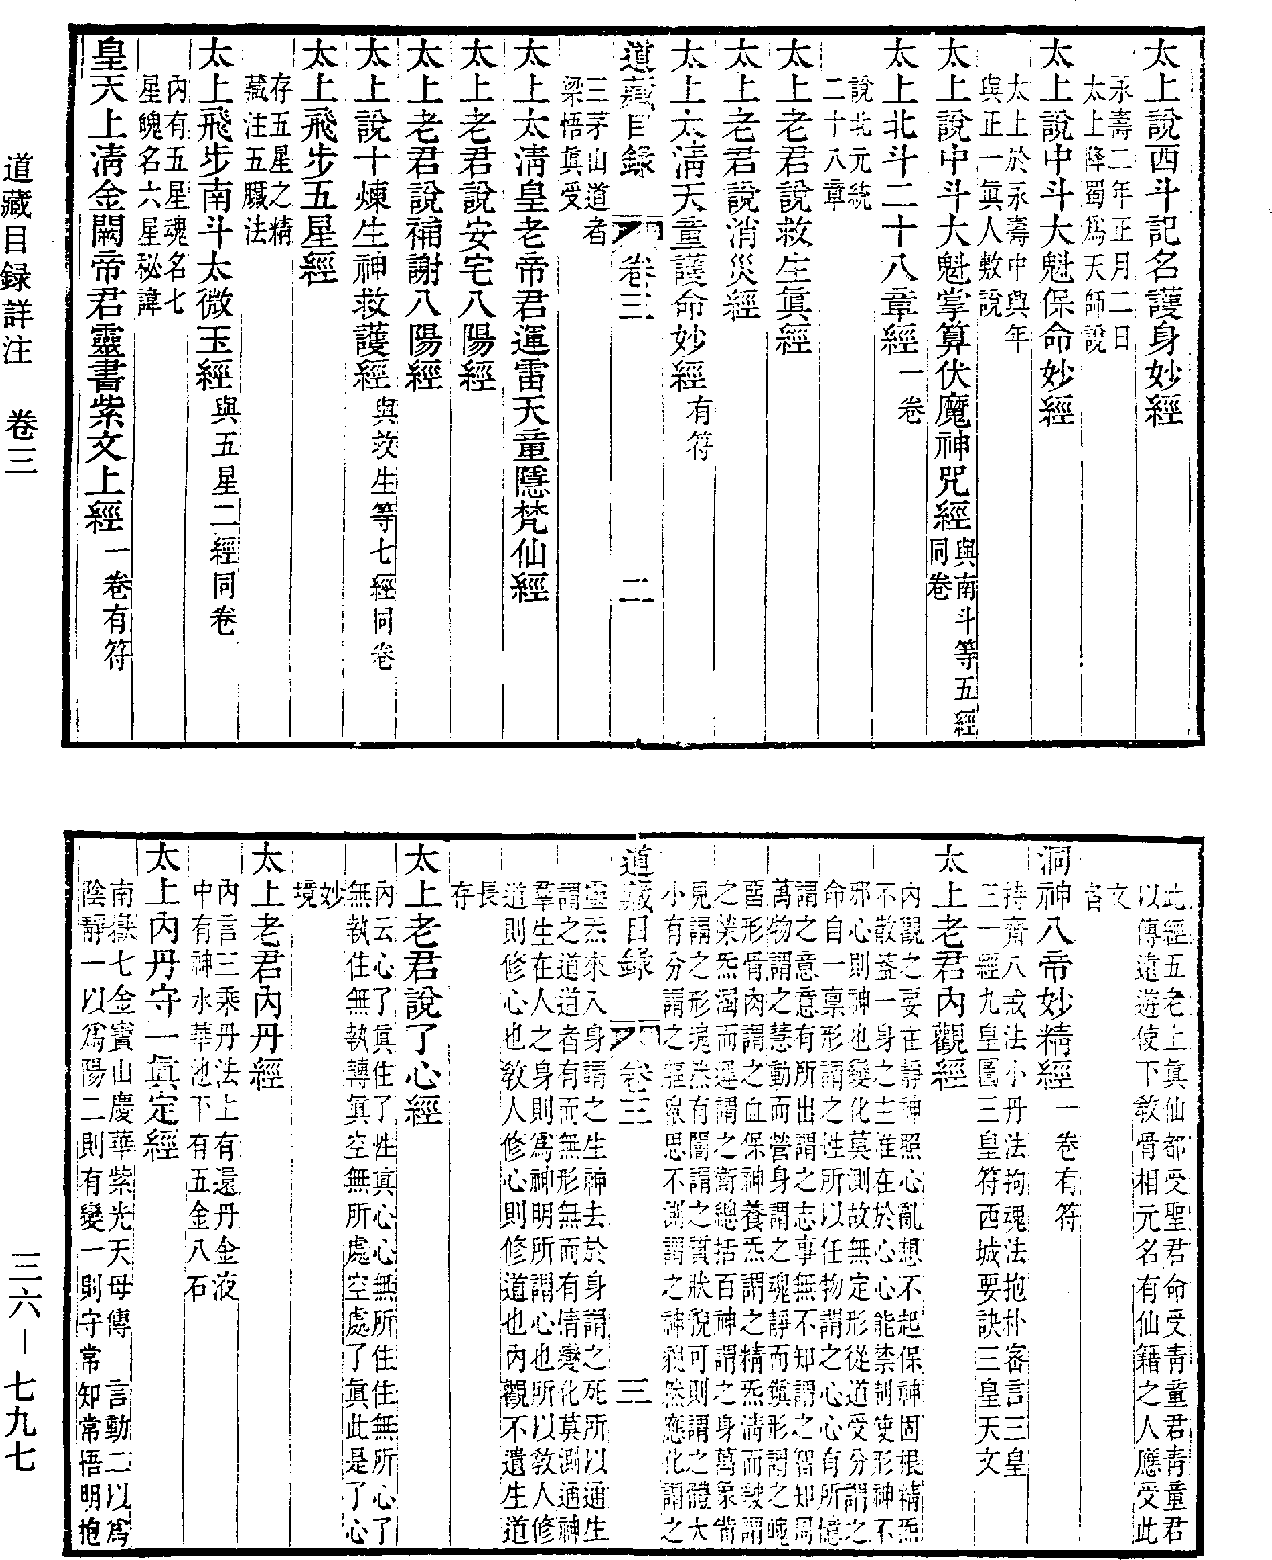 太上說西斗記名護身妙經
永壽二年正月二日
太上降蜀爲天師說
太上說中斗大魁保命妙經
太上於永壽中與年
與正一眞人敷說
太上說中斗大魁掌算伏魔神咒經 與南斗等五經
同卷
太上北斗二十八章經 一卷
說北元統
二十八章
太上老君說救生眞經
太上老君說消災經
太上太淸天童護命妙經 有符
道藏目錄 卷三 二
三茅山道者
梁悟眞受
太上太淸皇老帝君運雷天童隱梵仙經
太上老君說安宅八陽經
太上老君說補謝八陽經
太上說十煉生神救護經 與救生等七經同卷
太上飛步五星經
存五星之精
藏注五臟法
太上飛步南斗太微玉經 與五星二經同卷
內有五星魂名七
星魄名六星秘諱
皇天上淸金闕帝君靈書紫文上經 一卷有符
道藏目録詳注 卷三
此經五老上眞仙都受聖君命受靑童君靑童君
以傳遠遊使下敎骨相元名有仙籍之人應受此
文
洞神八帝妙精經 一卷有符
持齊八戒法小丹法拘魂法抱朴審言三皇
三一經九皇圖三皇符西城要訣三皇天文
太上老君內觀經
內觀之要在靜神照心亂想不起保神固根精炁
不散葢一身之主准在於心心能禁制使形神不
邪心則神也變化莫測故無定形從道受分謂之
命自一稟形謂之性所以任物謂之心心有所憶
謂之意意有所出謂之志事無不知謂之智知周
萬物謂之慧動而營身謂之魂靜而鎭形謂之魄
流形骨肉謂之血保神養炁謂之精炁淸而駛謂
之榮炁濁而遲謂之衛總括百神謂之身萬象備
見謂之形塊然有閡謂之質狀貌可則謂之體大
小有分謂之軀衆思不測謂之神邈然應化謂之
道藏目錄 卷三 三
靈炁來入身謂之生神去於身謂之死所以通生
謂之道道者有而無形無而有情變化莫測通神
羣生在人之身則爲神明所謂心也所以敎人修
道則修心也敎人修心則修道也內觀不遺生道
長
存
太上老君說了心經
內云心了眞住了性眞心心無所住住無所心了
無執住無執轉眞空無所處空處了眞此是了心
妙
境
太上老君內丹經
內言三乘丹法上有還丹金液
中有神水華池下有五金八石
太上內丹守一眞定經
南嶽七金寶山慶華紫光天母傳 言動二以爲
陰靜一以爲陽二則有變一則守常知常悟明抱
三六—七九七